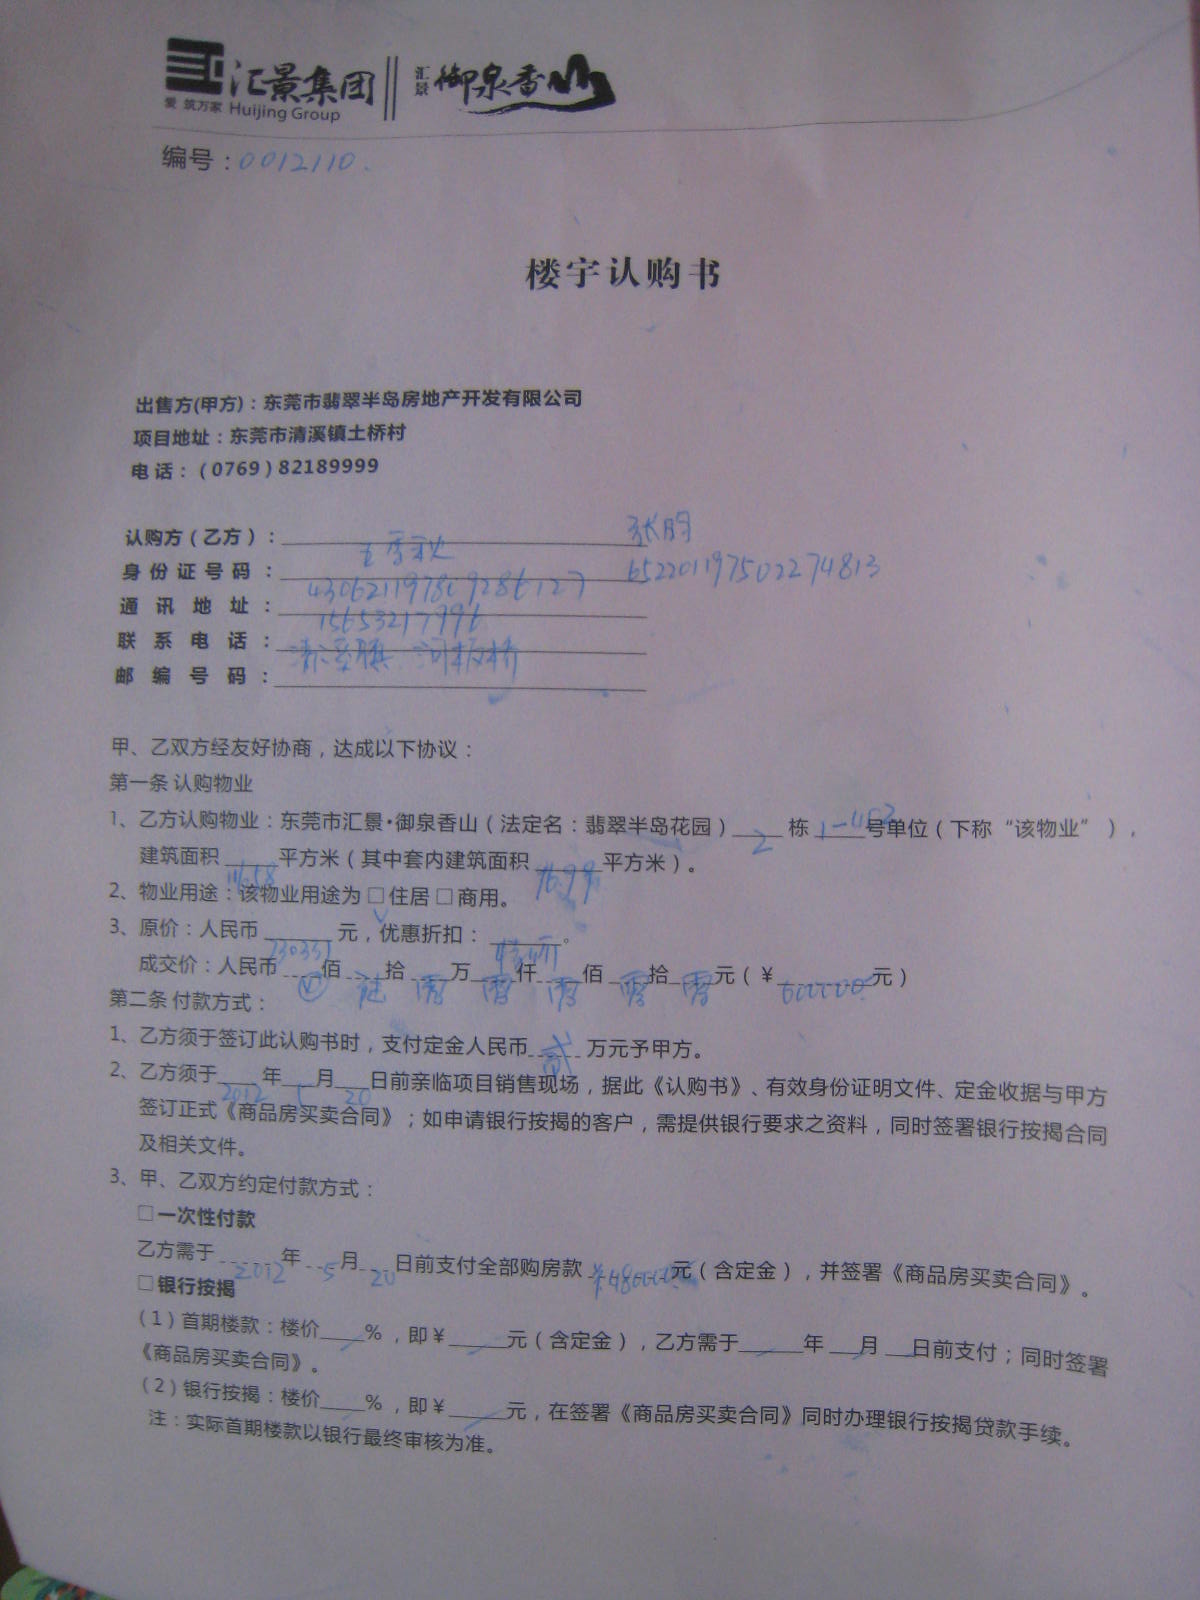 汇景集团 汇景 御泉香山
爱 筑万家 Huijing Group
编号：0012110.
楼宇认购书
出售方(甲方)：东莞市翡翠半岛房地产开发有限公司
项目地址：东莞市清溪镇土桥村
电 话：（0769）82189999
认购方（乙方）：
身份证号码：652201197502274813
通 讯 地 址：
联 系 电 话：
邮 编 号 码：
甲、乙双方经友好协商，达成以下协议：
第一条 认购物业
1、乙方认购物业：东莞市汇景·御泉香山（法定名：翡翠半岛花园）2 栋 号单位（下称“该物业”），
建筑面积 平方米（其中套内建筑面积 平方米）。
2、物业用途：该物业用途为 □ 住居 □ 商用。
3、原价：人民币 730331 元，优惠折扣： 。
成交价：人民币 佰 拾 零 万 零 仟 零 佰 零 拾 零 元（￥600000元）
第二条 付款方式：
1、乙方须于签订此认购书时，支付定金人民币 贰 万元予甲方。
2、乙方须于 2012 年 5 月 20 日前亲临项目销售现场，据此《认购书》、有效身份证明文件、定金收据与甲方
签订正式《商品房买卖合同》；如申请银行按揭的客户，需提供银行要求之资料，同时签署银行按揭合同
及相关文件。
3、甲、乙双方约定付款方式：
□ 一次性付款
乙方需于 2012 年 5 月 20 日前支付全部购房款 元（含定金），并签署《商品房买卖合同》。
□ 银行按揭
（1）首期楼款：楼价 %，即￥ 元（含定金），乙方需于 年 月 日前支付；同时签署
《商品房买卖合同》。
（2）银行按揭：楼价 %，即￥ 元，在签署《商品房买卖合同》同时办理银行按揭贷款手续。
注：实际首期楼款以银行最终审核为准。